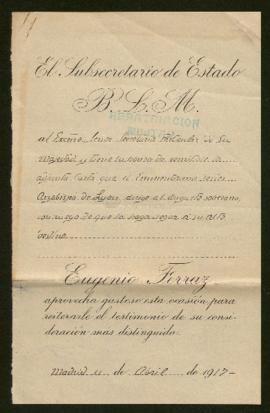 El Subsecretario de Estado
B. L. M.
REPATRIACION
MILITAR
al Excmo Señor Secretario Particular de Su
Majestad y tiene la honra de remitirle la
adjunta carta que el Eminentísimo señor
Arzobispo de Lyon dirige al
ruego de que la haga llegar a su alto
destino.
Eugenio Ferraz
aprovecha gustoso esta ocasión para
reiterarle el testimonio de su consi-
deración más distinguida.
Madrid 11 de Abril de 1917-